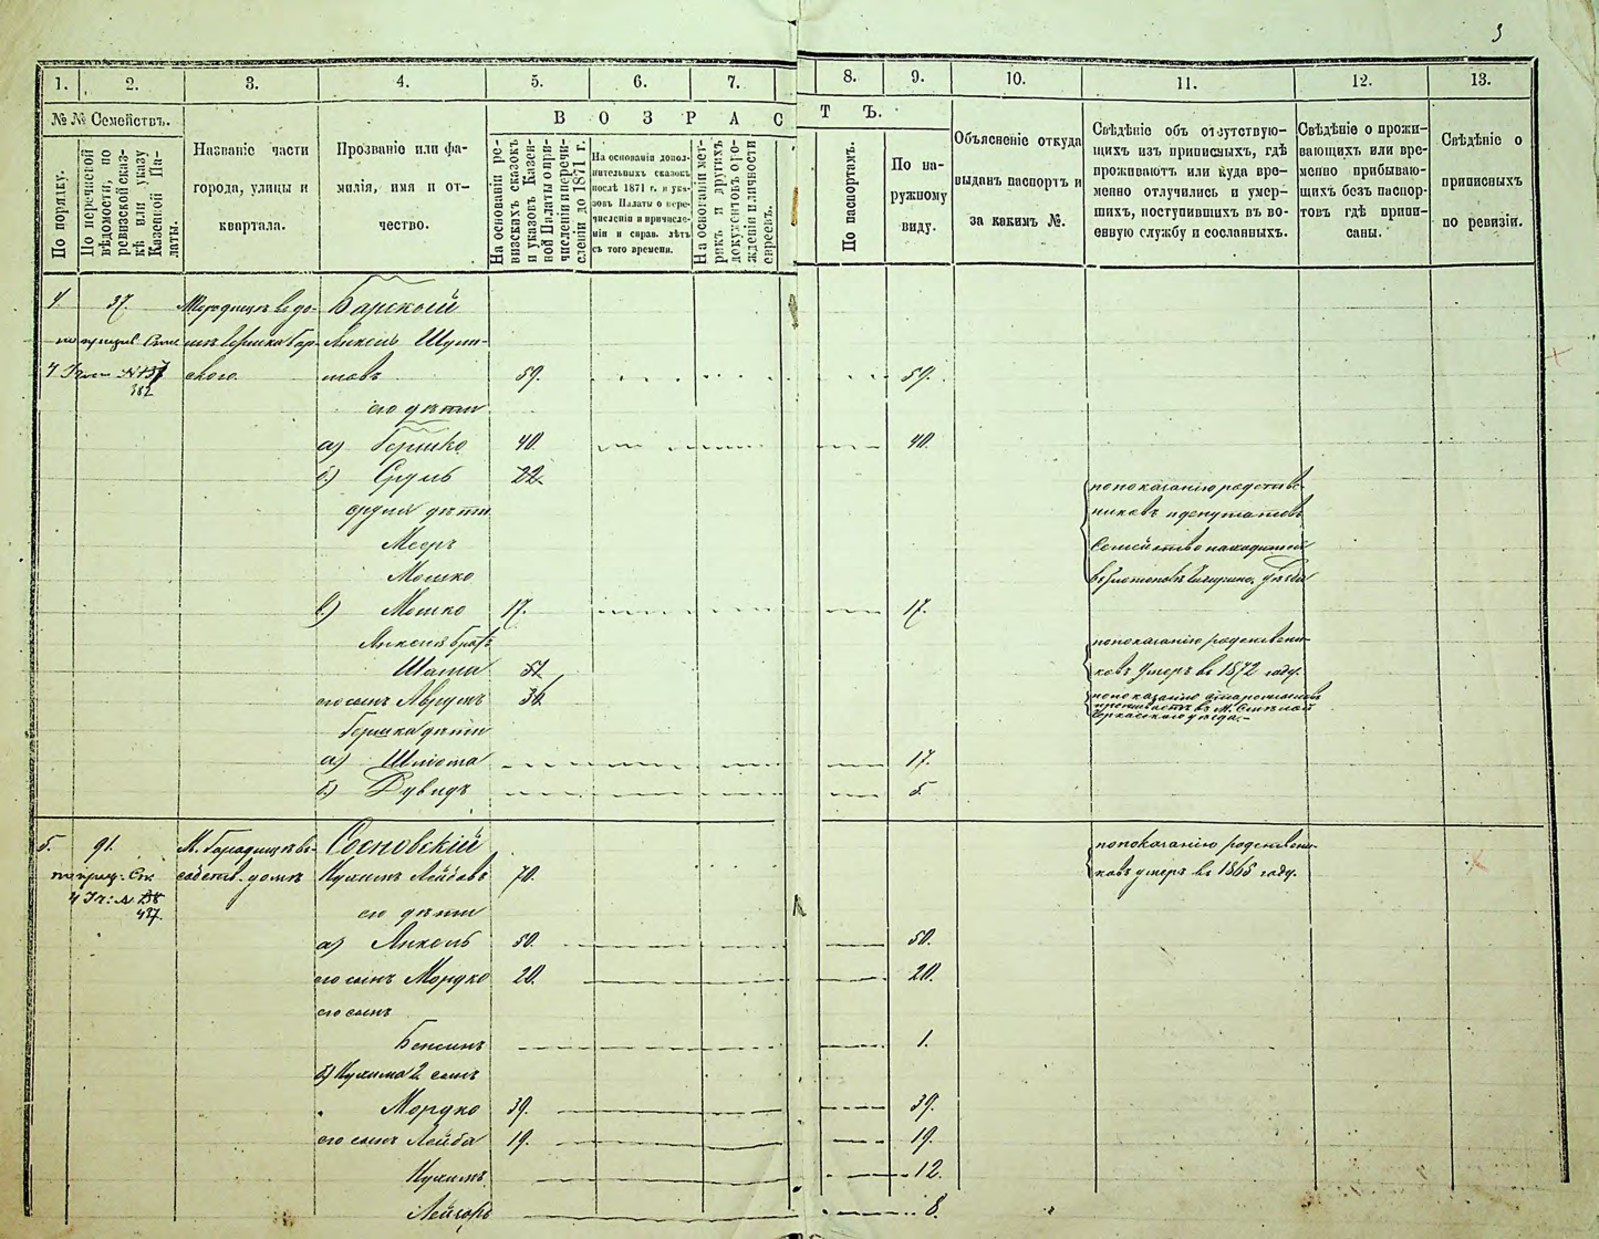 3
1. 2. 3. 4. 5. 6. 7. 8. 9. 10. 11. 12. 13.
№ № Семействъ.
По порядку.
По перечневой
вѣдомости, по
ревизской сказ-
кѣ или указу
Казенной Па-
латы.
Названіе части
города, улицы и
квартала.
Прозваніе или фа-
милія, имя и от-
чество.
В О З Р А С Т Ъ.
На основаніи ре-
визскихъ сказокъ
и указовъ Казен-
ной Палаты о при-
численіи и перечи-
сленіи до 1871 г.
На основаніи допол-
нительныхъ сказокъ
послѣ 1871 г. и ука-
зовъ Палаты о пере-
численіи и причисле-
ніи и справ. лѣтъ
съ того времени.
На основаніи мет-
рикъ и другихъ
документовъ о ро-
жденіи и личности
евреевъ.
По паспортамъ.
По на-
ружному
виду.
Объясненіе откуда
выданъ паспортъ и
за какимъ №.
Свѣдѣніе объ отсутствую-
щихъ изъ приписныхъ, гдѣ
проживаютъ или куда вре-
менно отлучились и умер-
шихъ, поступившихъ въ во-
енную службу и сосланныхъ.
Свѣдѣніе о прожи-
вающихъ или вре-
менно прибываю-
щихъ безъ паспор-
товъ гдѣ припи-
саны.
Свѣдѣніе о
приписныхъ
по ревизіи.
4. 37. Барский
Анкель Шули-
мовъ 59. 59.
ского.
382
его дѣти
а) Гершко 40. 40.
б) Сруль 22.
Сруля дѣти
Мееръ
Мошко
по показанію родствен-
никовъ и депутатовъ
Семейство находится
в) Мошко 17. 17.
Анкеля братъ
Шама 51.
по показанію родственни-
ковъ умеръ въ 1872 году.
его сынъ Аврумъ 36
по показанію
проживаетъ въ М. Смѣлой
Черкасского уѣзда.
Гершка дѣти
а) Шліома 17.
б) Дувидъ 5.
5. 91. М. Городище въ Сосновскій
собств. домѣ Нухимъ Лейбовъ 70.
по показанію родственни-
ковъ умеръ въ 1865 году.
его дѣти
437.
а) Анкель 50. 50.
его сынъ Мордко 20. 20.
его сынъ
Бенсинъ 1.
б) Нухима 2 сынъ
Мордко 39. 39.
его сынъ Лейба 19. 19.
Нухимъ 12.
8.